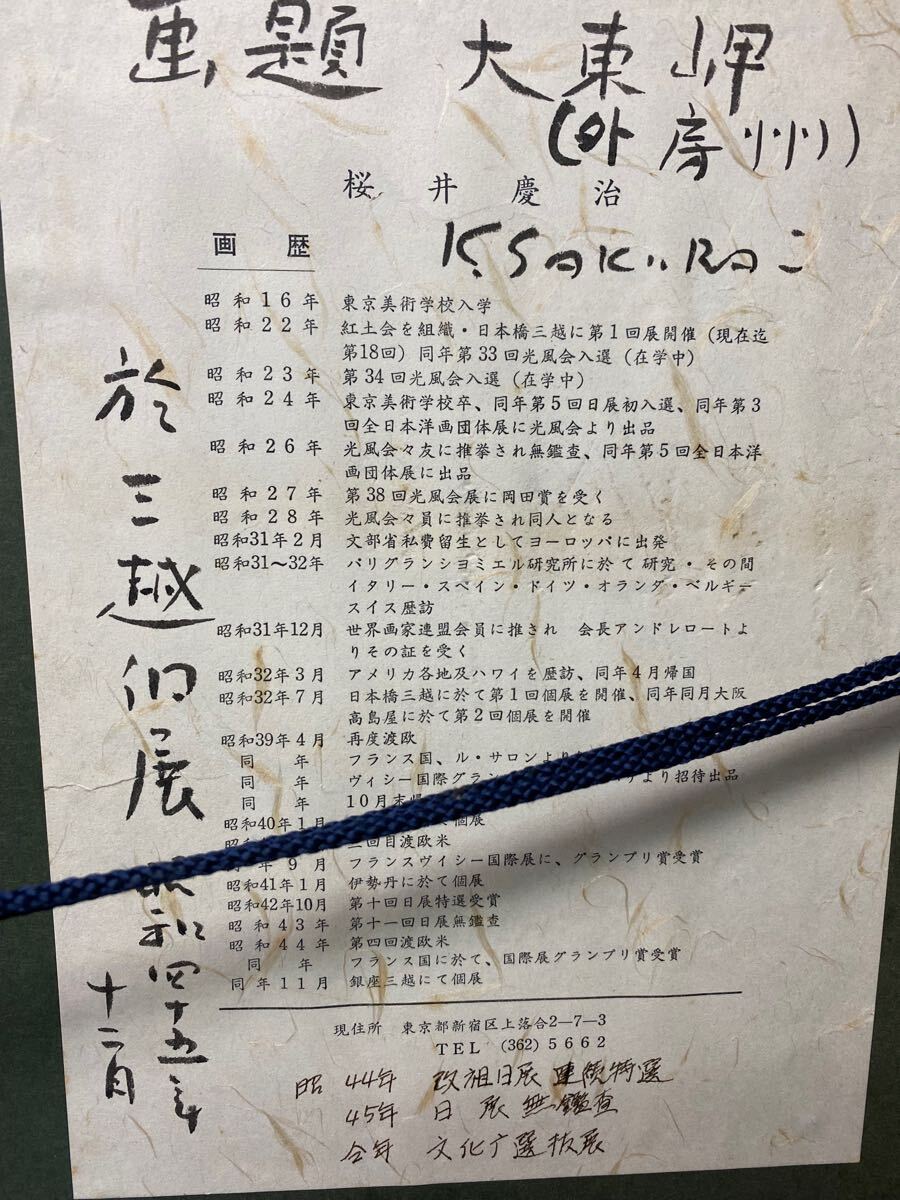 画題 大東岬
(外房州)
桜井慶治
K.SaKuRai
画歴
昭和16年 東京美術学校入学
昭和22年 紅土会を組織・日本橋三越に第1回展開催（現在迄
第18回）同年第33回光風会入選（在学中）
昭和23年 第34回光風会入選（在学中）
昭和24年 東京美術学校卒、同年第5回日展初入選、同年第3
回全日本洋画団体展に光風会より出品
昭和26年 光風会々友に推挙され無鑑査、同年第5回全日本洋
画団体展に出品
昭和27年 第38回光風会展に岡田賞を受く
昭和28年 光風会々員に推挙され同人となる
昭和31年2月 文部省私費留生としてヨーロッパに出発
昭和31〜32年 パリグランシヨミエル研究所に於て研究・その間
イタリー・スペイン・ドイツ・オランダ・ベルギー
スイス歴訪
昭和31年12月 世界画家連盟会員に推され 会長アンドレロートよ
りその証を受く
昭和32年3月 アメリカ各地及ハワイを歴訪、同年4月帰国
昭和32年7月 日本橋三越に於て第1回個展を開催、同年同月大阪
高島屋に於て第2回個展を開催
昭和39年4月 再度渡欧
同年 フランス国、ル・サロンより
同年 ヴィシー国際グラン より招待出品
同年 10月末
昭和40年1月 個展
三回目渡欧米
年9月 フランスヴィシー国際展に、グランプリ賞受賞
昭和41年1月 伊勢丹に於て個展
昭和42年10月 第十回日展特選受賞
昭和43年 第十一回日展無鑑査
昭和44年 第四回渡欧米
同年 フランス国に於て、国際展グランプリ賞受賞
同年11月 銀座三越にて個展
現住所 東京都新宿区上落合2—7—3
TEL (362)5662
昭44年 改祖日展連続特選
45年 日展無鑑査
今年 文化庁選抜展
於三越個展 昭和四十五年
十二月